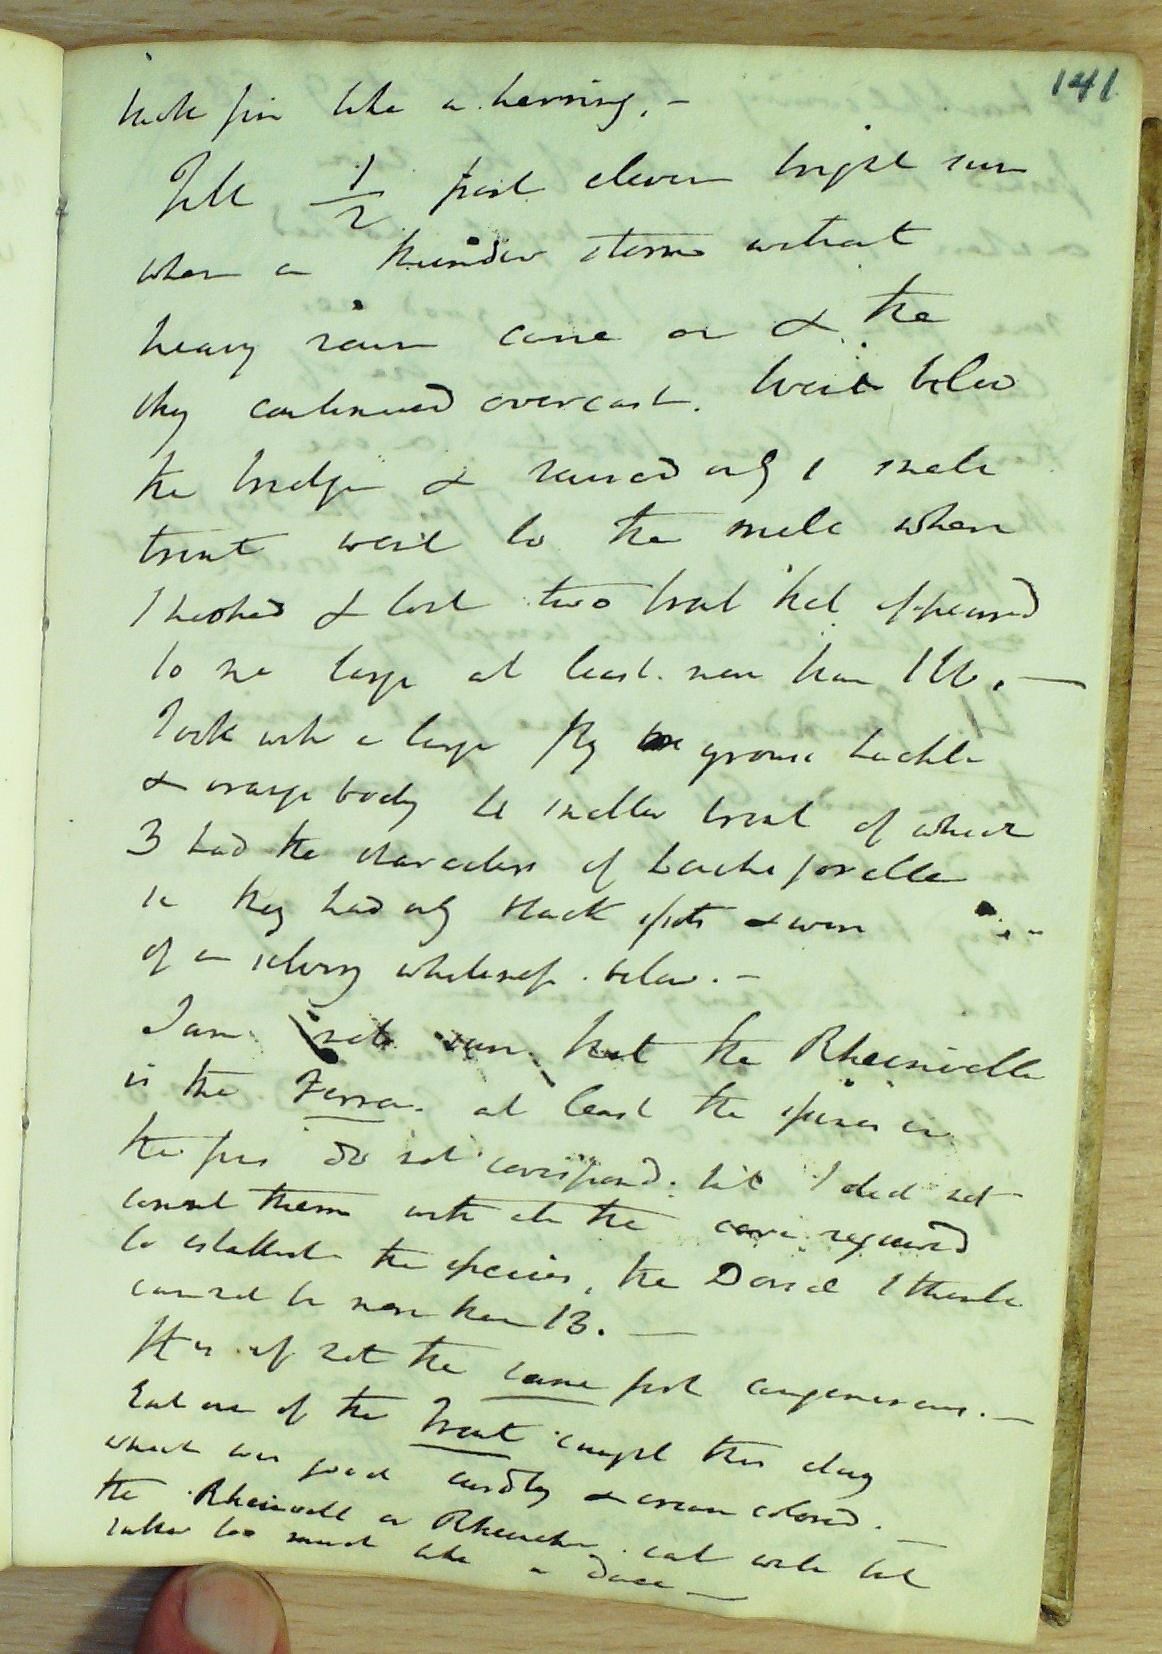 141
back fin like a herring. -
Till 1/2 past eleven bright sun
when a thunder storm without
heavy rain came on & the
sky continued overcast. Went below
the bridge & raised only 1 small
trout went to the mill where
I hooked & lost two trout that appeared
to me large at least more than 1lb. -
Took with a large fly grouse hackle
& orange body the smaller trout of which
3 had the characters of forelle
ie they had only black spots & were
of a silvery whiteness below. -
I am not sure that the
is the Ferra. at least the spines in
the fins do not correspond. but I did not
count them with all the care required
to establish the species, the Dorsal I think
cannot be more than 13. -
It is if not the same fish congenerous. -
Eat one of the Trout caught this day
which was good curdly & cream colored. -
the or eat well but
rather too much like a Dace -